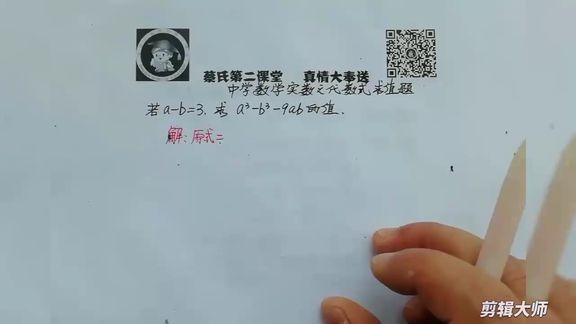 蔡氏第二课堂 真情大奉送
中学数学实数之代数式求值题
若a-b=3,求 a³-b³-9ab的值.
解:原式=
剪辑大师